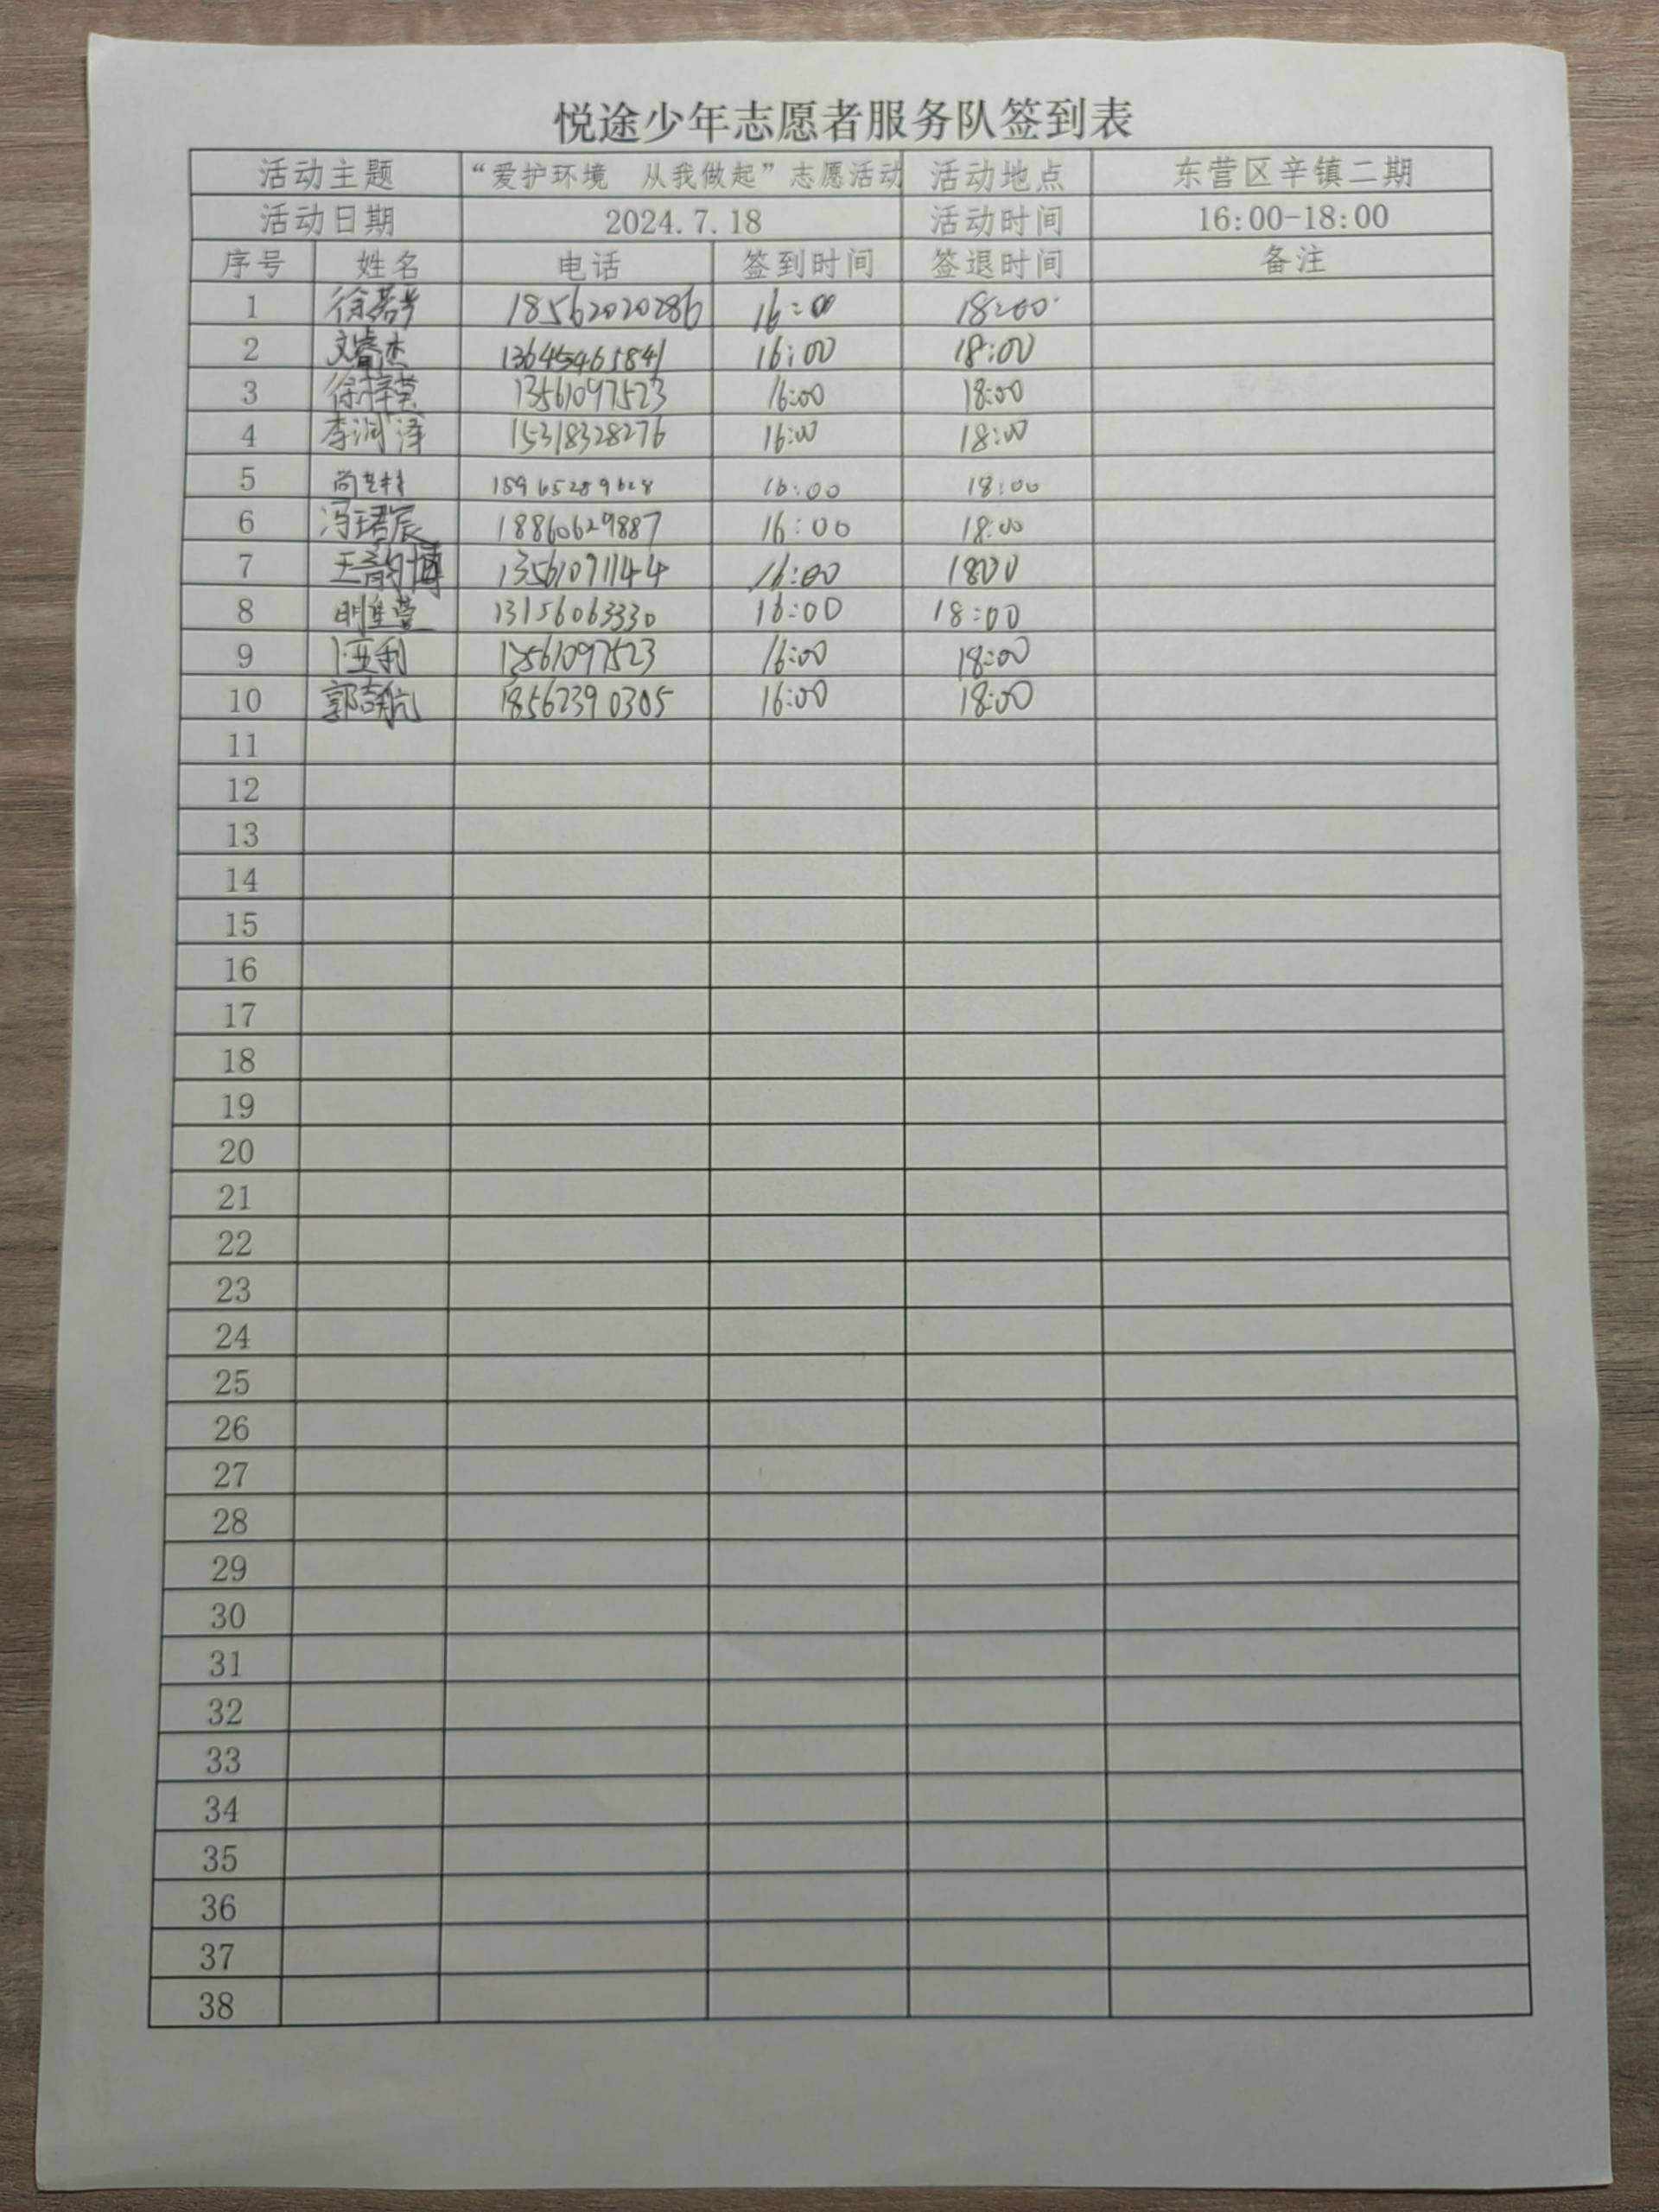 悦途少年志愿者服务队签到表
活动主题 “爱护环境 从我做起”志愿活动 活动地点 东营区辛镇二期
活动日期 2024.7.18 活动时间 16:00-18:00
序号 姓名 电话 签到时间 签退时间 备注
1 18562020286 16:00 18:00
2 文睿杰 13645465841 16:00 18:00
3 13561097523 16:00 18:00
4 李润泽 15318328276 16:00 18:00
5 16:00 18:00
6 冯珺宸 18860629887 16:00 18:00
7 王韵博 13561091144 16:00 1800
8 13156063330 16:00 18:00
9 卜亚利 13561097523 16:00 18:00
10 郭奇航 18562390305 16:00 18:00
11
12
13
14
15
16
17
18
19
20
21
22
23
24
25
26
27
28
29
30
31
32
33
34
35
36
37
38